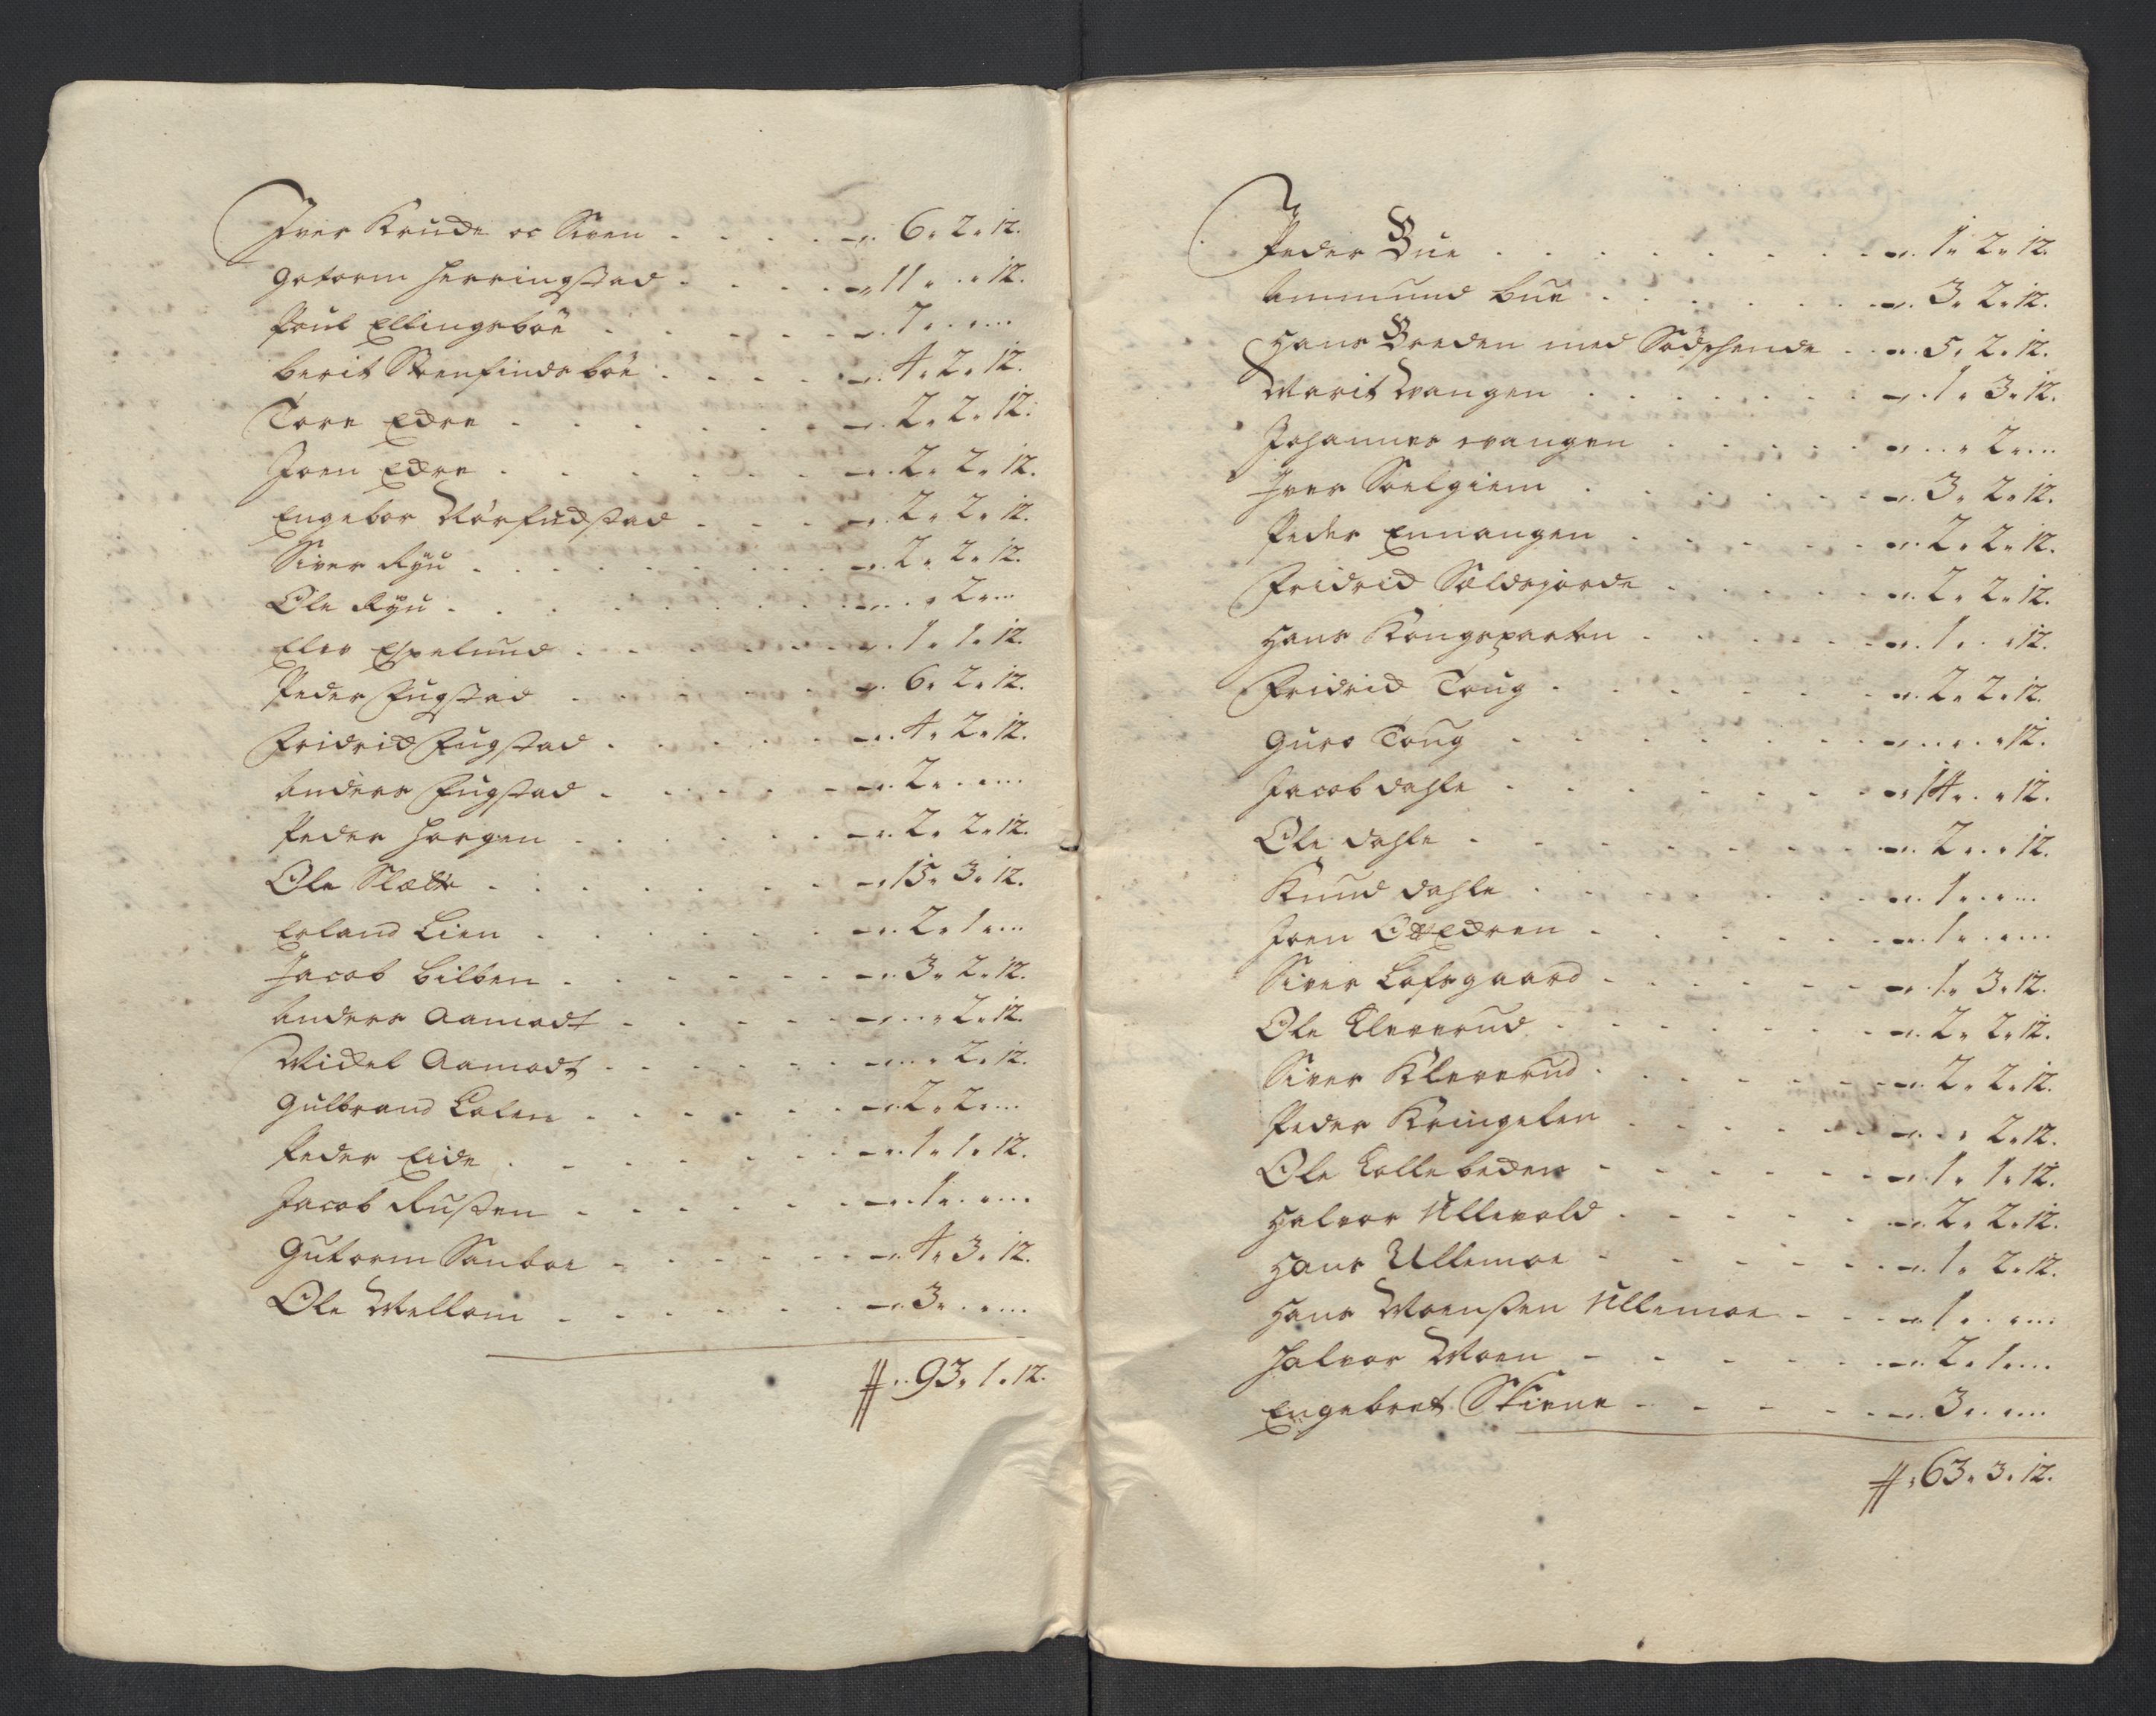 Iver Krude oc Siven - - - - 6. 2. 12.
Gotorm Herringstad - - - 11 . . . 12.
Poul Ellingsböe - - - 7. . . ...
Berit Steenfindsböe - - - 4. 2. 12.
Tore Edre - - - 2. 2. 12.
Joen Edre - - - 2. 2. 12.
Engebor Nörfudstad - - - 2. 2. 12.
Siver Ryu - - - 2. 2. 12.
Ole Ryu - - - . . 2. ...
Elev Espelund - - - 1. 1. 12.
Peder Fugstad - - - 6. 2. 12.
Fridrich Fugstad - - - 4. 2. 12.
Anders Fugstad - - - 2. . . ...
Peder Horgen - - - 2. 2. 12.
Ole Slætte - - - 15. 3. 12.
Erland Lien - - - 2. 1. ...
Jacob Bilben - - - 3. 2. 12.
Anders Aamodt - - - . . 2. 12.
Michel Aamodt - - - . . 2. 12.
Gulbrand Lolen - - - 2. 2. ...
Peder Eide - - - 1. 1. 12.
Jacob Rusten - - - 1. . . ...
Gutorm Sanboe - - - 4. 3. 12.
Ole Mellom - - - 3. . . ...
93. 1. 12.
Peder Bue - - - 1. 2. 12.
Ammund Bue - - - 3. 2. 12.
Hans Breden med Södschende - - 5. 2. 12.
Marit Vangen - - - 1. 3. 12.
Johannes Vangen - - - . . 2. ...
Iver Soelgiem - - - 3. 2. 12.
Peder Ennangen - - - 2. 2. 12.
Fridrich Soldsjorde - - - 2. 2. 12.
Hans Kongsparten - - - 1. . . 12.
Fridrich Toug - - - 2. 2. 12.
Guro Toug - - - . . . . 12.
Jacob Dahle - - - 14. . . 12.
Ole Dahle - - - 2. . . 12.
Knud Dahle - - - 1. . . ...
Joen Edren - - - 1. . . ...
Siver Lofsgaard - - - 1. 3. 12.
Ole Kleverud - - - 2. 2. 12.
Siver Kleverud - - - 2. 2. 12.
Peder Kringelen - - - . . 2. 12.
Ole Kollebecken - - - 1. 1. 12.
Halvor Ullevold - - - 2. 2. 12.
Hans Ullemoe - - - 1. 2. 12.
Hans Moensten Ullemoe - - - 1. . . ...
Halvor Moen - - - 2. 1. ...
Engebret Skiene - - - 3. . . ...
63. 3. 12.